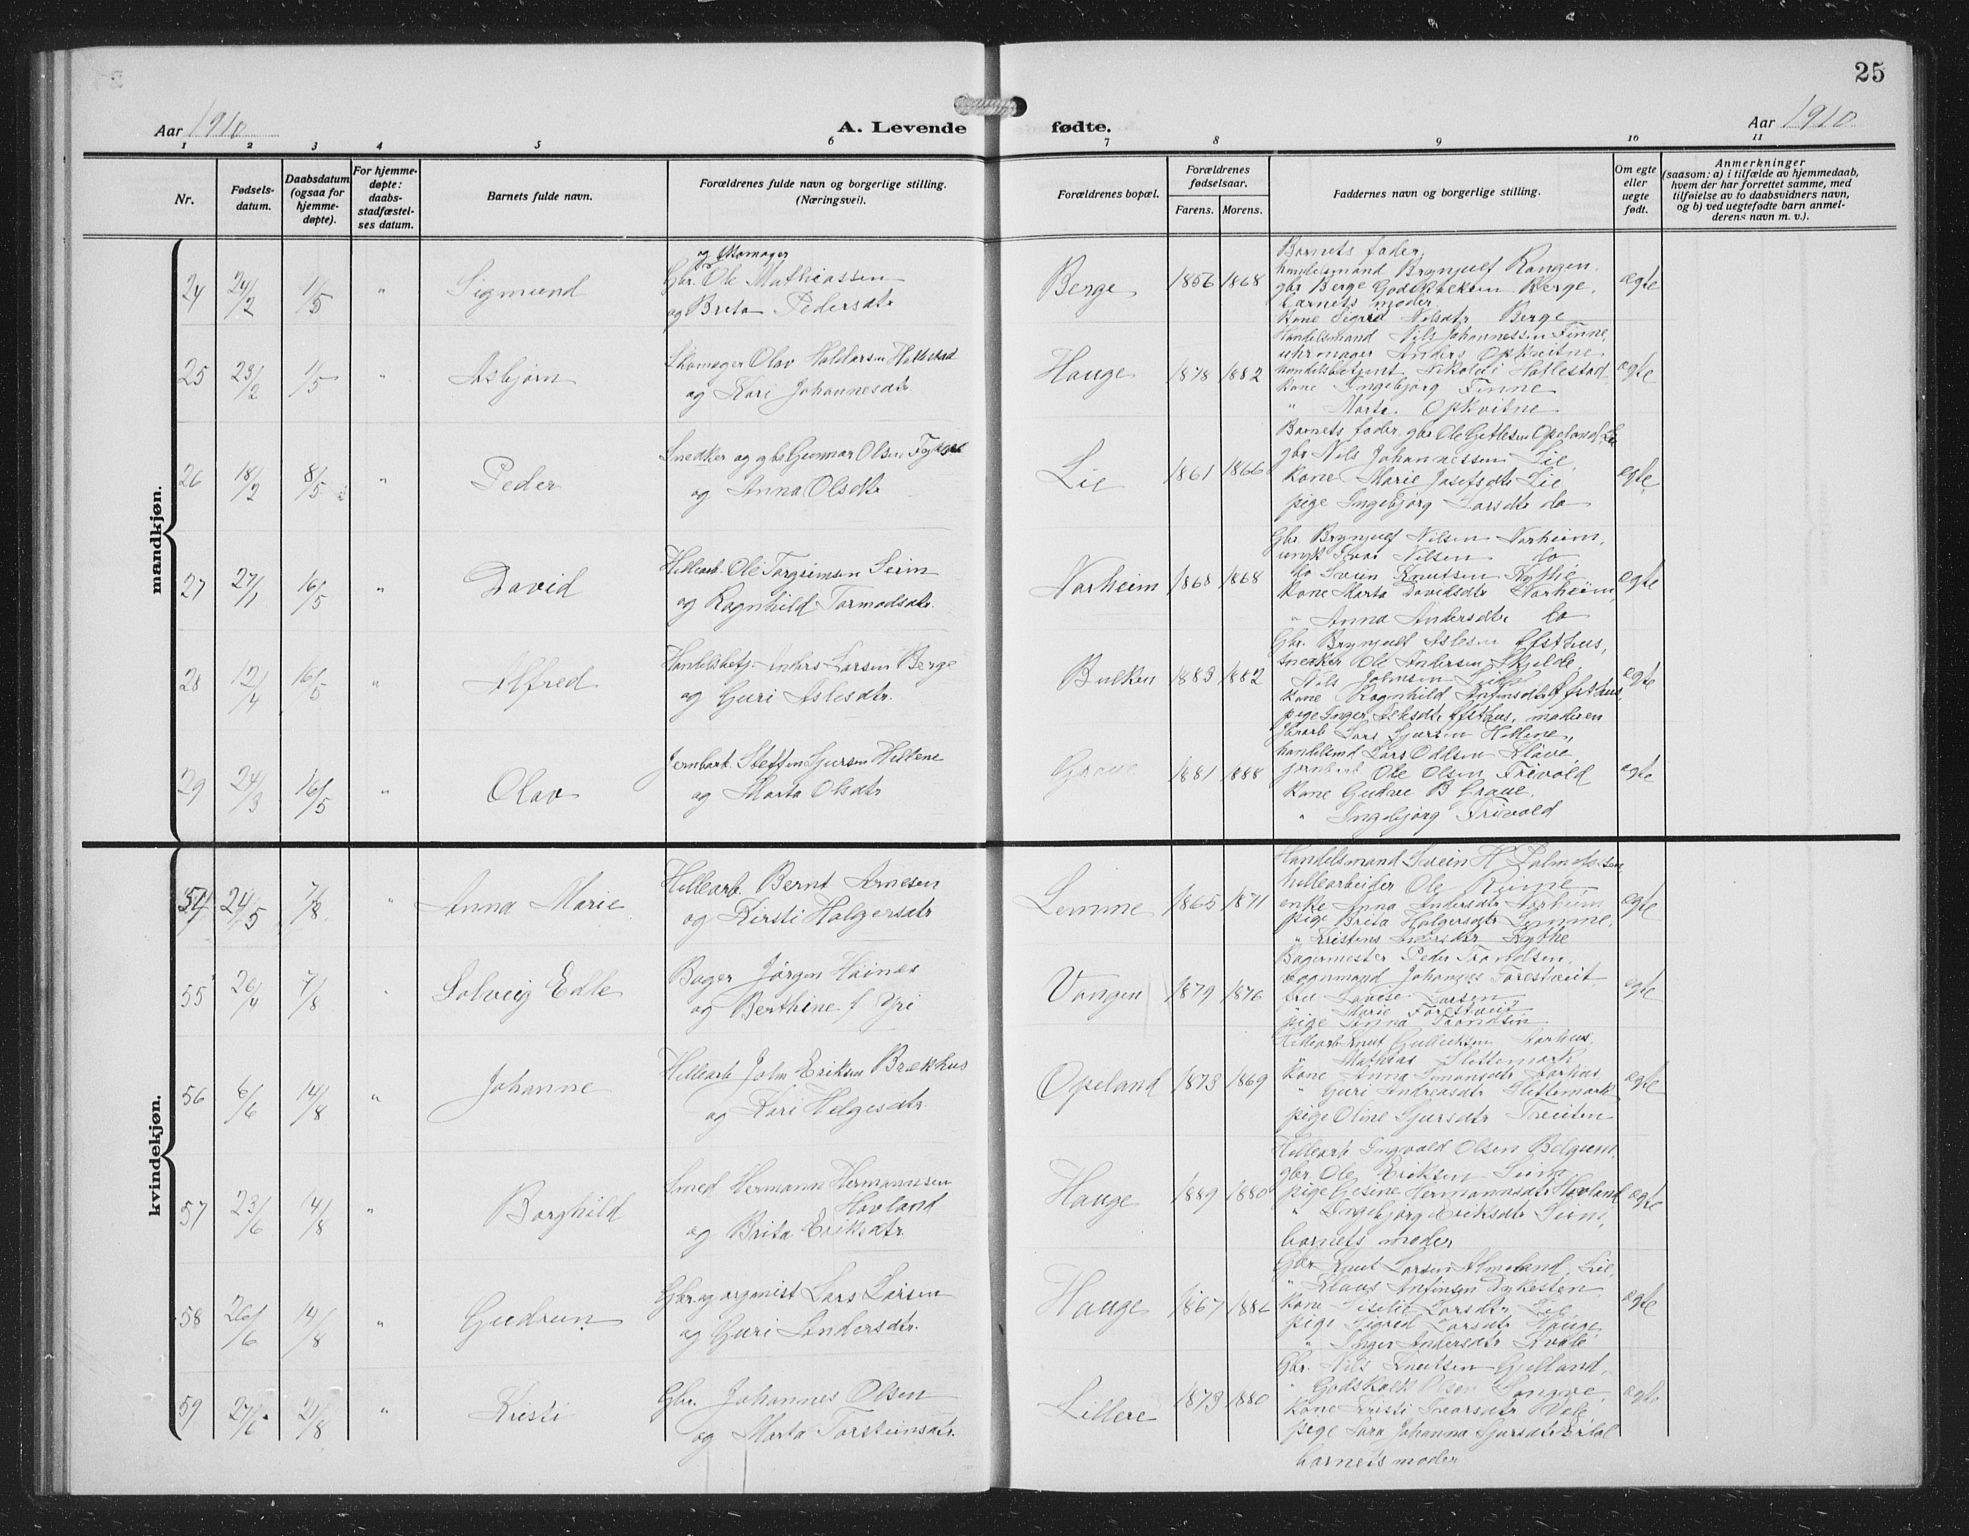 25
Aar 1910
A. Levende fødte.
Aar 1910
1 2 3 4 5 6 7 8 9 10 11
Nr.
Fødsels-
datum.
Daabsdatum
(ogsaa for
hjemme-
døpte).
For hjemme-
døpte:
daabs-
stadfæstel-
ses datum.
Barnets fulde navn.
Forældrenes fulde navn og borgerlige stilling.
(Næringsvei).
Forældrenes bopæl.
Forældrenes
fødselsaar.
Farens. Morens.
Faddernes navn og borgerlige stilling.
Om egte
eller
uegte
født.
Anmerkninger
(saasom: a) i tilfælde av hjemmedaab,
hvem der har forrettet samme, med
tilføielse av to daabsvidners navn,
og b) ved uegtefødte barn anmel-
derens navn m. v.).
mandkjøn.
24 24/2 1/5 " Sigmund
og Skomager
Gbr. Ole Mathiassen
og Brita Pedersdtr
Berge 1856 1868
Barnets fader,
handelsmand Brynjulf Rongen,
gbr Berge Godskalksen Berge,
barnets moder
kone Sigrid Nilsdtr Berge
egte
25 23/2 1/5 " Asbjørn
Skomager Olav Haldorsen Hellestad
og Kari Johannesdtr
Hauge 1878 1882
Handelsmand Nils Johannessen Finne,
uhrmager Anders Opkvitne
handelsbetjent Nikolai Hatlestad
kone Ingebjørg Finne
" Marta Opkvitne
egte
26 18/2 8/5 " Peder
Snedker og gbr. Gunnar Olsen
og Anna Olsdtr
Lie 1861 1866
Barnets fader, gbr Ole Opeland
gbr Nils Johannessen Lie,
kone Marie Josefsdtr Lie
pige Ingebjørg Larsdtr do
egte
27 27/1 16/5 " David
Hellearb. Ole Torgrimsen Seim
og Ragnhild Tormodsdtr.
Norheim 1868 1868
Gbr Brynjulf Nilsen Norheim,
ungk Ivar Nilsen do
do Svein Knutsen Kythe
kone Marta Davidsdtr Norheim,
" Anna Andersdtr do
egte
28 12/4 16/5 " Alfred
Handelsbetj. Anders Larsen Berge
og Guri Aslesdtr.
Bulken 1883 1882
Gbr. Brynjulf Aslesen Efsthus,
snedker Ole Andersen Skjelde,
Nils Johnsen
kone Ragnhild Efsthus,
pige Inger Aslesdtr Efsthus, moderen
egte
29 24/3 16/5 " Olav
Jernbarb. Steffen Sjursen Hellene
og Marta Olsdtr
Grove 1881 1888
Jbarb Lars Sjursen Hellene,
handelsmd Lars Oddsen Kløve,
jernbarb Ole Olsen Trivold
kone Gudve B Grove,
" Ingebjørg Trivold
egte
kvindekjøn.
54 24/5 7/8 " Anna Marie
Hellearb Bernt Arnesen
og Kirsti Holgersdtr
Lemme 1865 1871
Handelsmand Svein H Palmesen
hellearbeider Ole Rime
enke Anna Andersdtr Norheim
pige Brita Holgersdtr Lemme,
" Kristine Andersdtr Kythe
egte
55 26/4 7/8 " Solveig Edle
Bager Jørgen Høines
og Berthine f Yri
Vangen 1879 1876
Bagermester Peder Trondsen,
vognmand Johannes Forestveit,
fru Lovise Larsen,
" Marie Forestveit,
pige Anna Trondsen
egte
56 6/6 14/8 " Johanne
Hellearb John Eriksen Brækhus
og Kari Helgesdtr.
Opeland 1873 1869
Hellearb Knut Gulleiksen Aarhus,
" Mathias Slettemark
kone Anna Simonsdtr Aarhus
" Guri Andreasdtr Slettemark
pige Oline Sjursdtr Tveiten
egte
57 23/6 14/8 " Borghild
Smed Hermann Hermannsen
Hovland
og Brita Eriksdtr.
Hauge 1889 1880
Hellearb Ingvald Olsen
gbr. Ole Eriksen
pige Gesine Hermannsdtr Hovland
" Ingebjørg Eriksdtr
barnets moder
egte
58 26/6 14/8 " Gudrun
Gbr. og organist Lars Larsen
og Guri Andersdtr.
Hauge 1867
Gbr Knut Larsen Almeland, Lie,
" Klaus Anfinsen Dykesten,
kone Siselie Larsdtr Lie
pige Sigrid Larsdtr Hauge,
" Inger Andersdtr Kvale
egte
59 27/6 21/8 " Kristi
Gbr. Johannes Olsen
og Marta Torsteinsdtr.
Lillere 1873 1880
Gbr. Nils Knutsen Gjelland,
" Godskalk Olsen Songve,
kone Kristi Ivarsdtr Vele
pige Sara Johanna Sjursdtr
barnets moder
egte